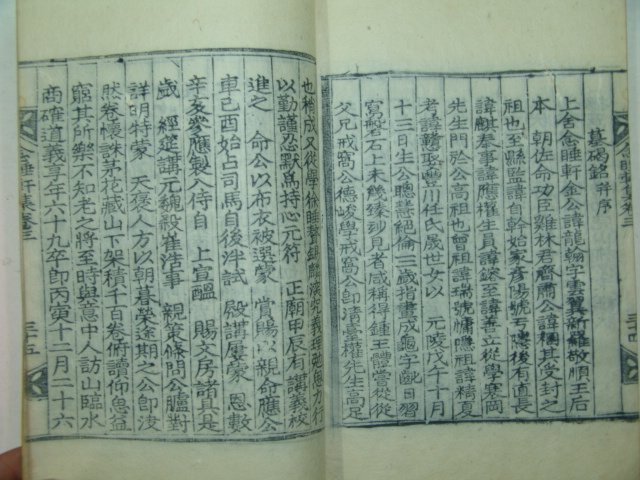 墓碣銘 幷序
上舍念睡軒金公諱龍翰字雲翼新羅敬順王后
本 朝佐命功臣雞林君齊肅公諱稛其後封之
祖也至縣監諱自幹始家彦陽號 後有直長
諱麒奉事諱應權生員諱鎵至諱善立從學寒岡
先生門於公高祖也曾祖諱瑞號慵隱祖諱精夏
考諱 娶豊川任氏歲世女以 元陵戊午十月
十三日生公聰慧絕倫三歲指畫成龜字 日習
寫磐石上未幾臻妙見者咸稱得鍾王體嘗從從
父兄戒窩公德峻學戒窩公卽淸臺權先生高足
也 成又從學 睡 敎 究義理勉 力行
以勤謹忍默爲持心元符 正廟甲辰有講義校
進之 命公以布衣被選蒙 賞賜以親命應公
車己酉始占司馬自後泮試 殿講屢蒙 恩數
辛亥參應製入侍自 上宣醞 賜文房諸具是
歲 經筵講元魏殺崔浩事 親策條問公臚對
詳明特蒙 天褒人方以朝暮榮途期之公卽浚
然卷懷誅茅花藏山下架積千百卷俯讀仰思益
窮其所樂不知老之將至時與意中人訪山臨水
商確道義享年六十九卒卽丙寅十二月二十六
念睡軒集卷三
三十五